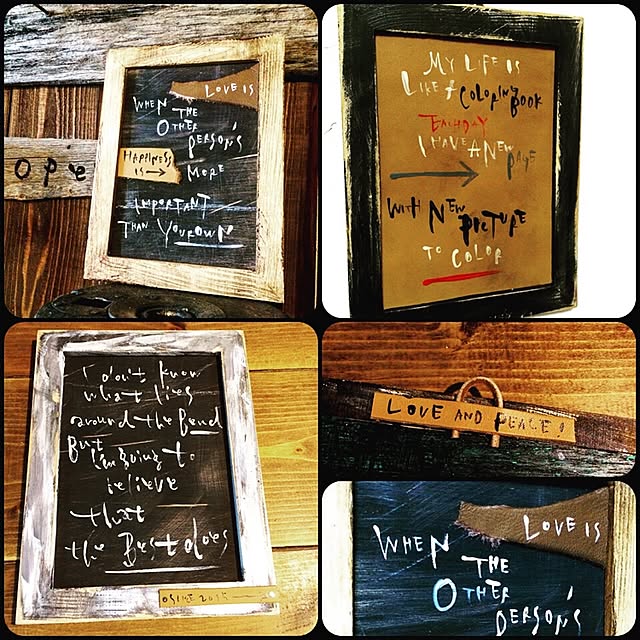 LOVE IS
WHEN
THE
OTHER
PERSON'S
HAPPINESS
IS →
MORE
IMPORTANT
THAN YOUROWN
MY LIFE IS
LIKE A COLORING
BOOK
EACHDAY
I HAVE A NEW
PAGE
WITH NEW PICTURE
TO COLOR
I don't know
what lies
around the Bend
But
I'm going to
believe
that
the Best does
LOVE AND PEACE!
LOVE IS
WHEN
THE
OTHER
PERSON'S